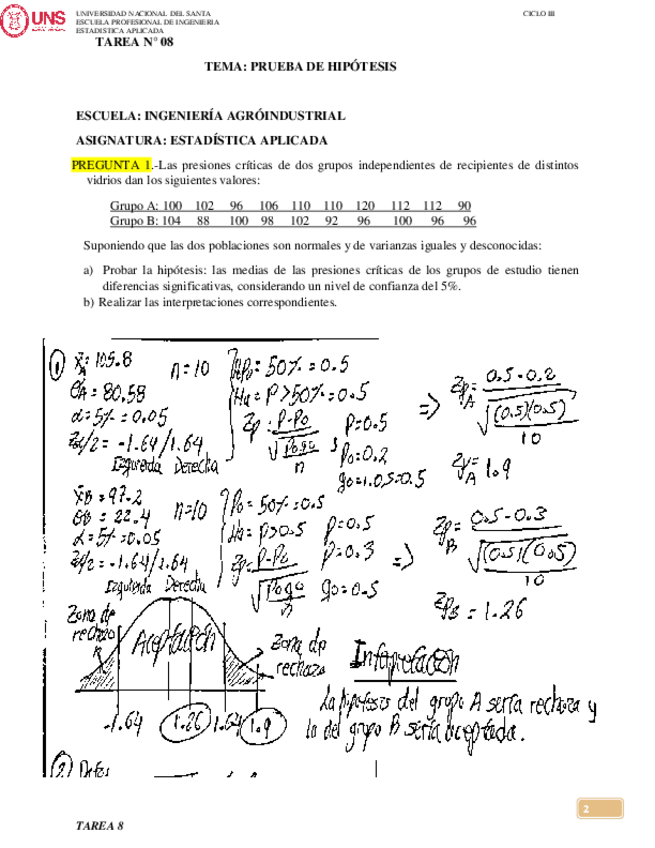 UNS
UNIVERSIDAD NACIONAL DEL SANTA
CICLO III
ESCUELA PROFESIONAL DE INGENIERIA
ESTADISTICA APLICADA
TAREA N° 08
TEMA: PRUEBA DE HIPÓTESIS
ESCUELA: INGENIERÍA AGRÓINDUSTRIAL
ASIGNATURA: ESTADÍSTICA APLICADA
PREGUNTA 1.-Las presiones críticas de dos grupos independientes de recipientes de distintos
vidrios dan los siguientes valores:
Grupo A: 100 102 96 106 110 110 120 112 112 90
Grupo B: 104 88 100 98 102 92 96 100 96 96
Suponiendo que las dos poblaciones son normales y de varianzas iguales y desconocidas:
a) Probar la hipótesis: las medias de las presiones críticas de los grupos de estudio tienen
diferencias significativas, considerando un nivel de confianza del 5%.
b) Realizar las interpretaciones correspondientes.
1
= 105.8
n=10
= 50% = 0.5
= 80.58
Ha = P>50% = 0.5
α=5% = 0.05
Zp = P-Po
P=0.5
Zα/2 = -1.64/1.64
Po=0.2
Izquierda Derecha
=> Zp A = 0.5-0.2
(0.5)(0.5)
10
A 1.9
XB = 97.2
n=10
Po = 50% = 0.5
= 22.4
Ha = P>0.5
P=0.5
α=5% = 0.05
Zp = P-Po
P=0.3
Zα/2 = -1.64/1.64
n
qo=0.5
Izquierda Derecha
=> Zp B = 0.5-0.3
(0.5)(0.5)
10
ZpB = 1.26
Zona de
rechazo
Aceptación
Zona de
rechazo
-1.64 1.26 1.64 1.9
Interpretación
La hipótesis del grupo A sería rechaza y
la del grupo B sería aceptada.
2) Datos
2
TAREA 8